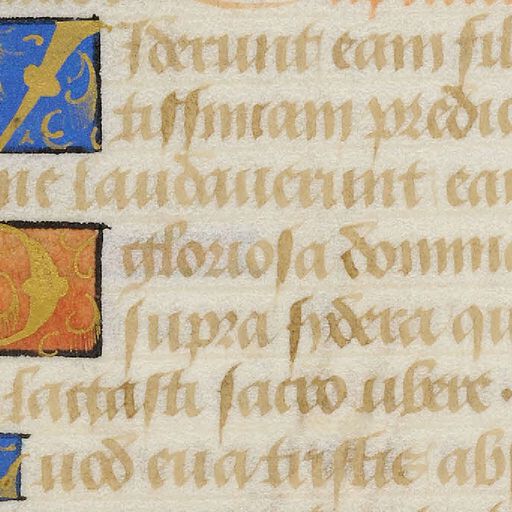 Viderunt eam fil
tissimam predic
ne laudauerunt ea
O gloriosa domina
supra sydera qu
lactasti sacro ubere.
Quod eua tristis abs